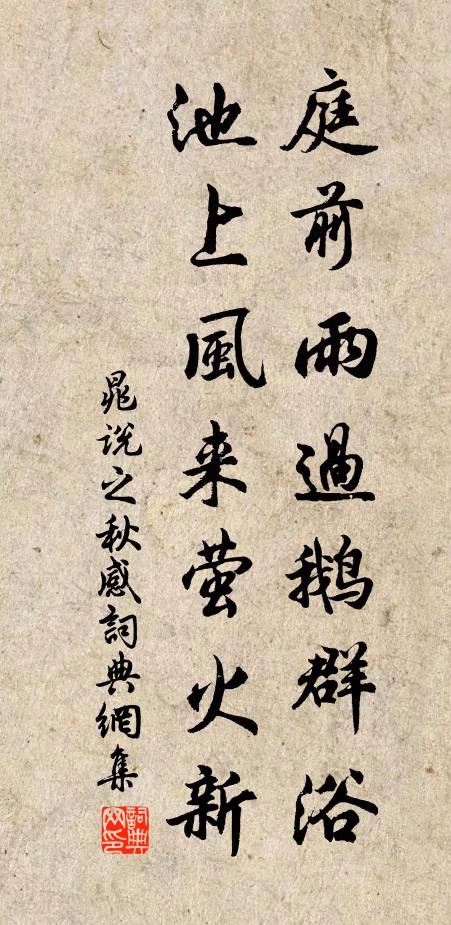 庭前雨過鵝群浴
池上風来萤火新
晁説之秋感詞典網集
詞典
网印